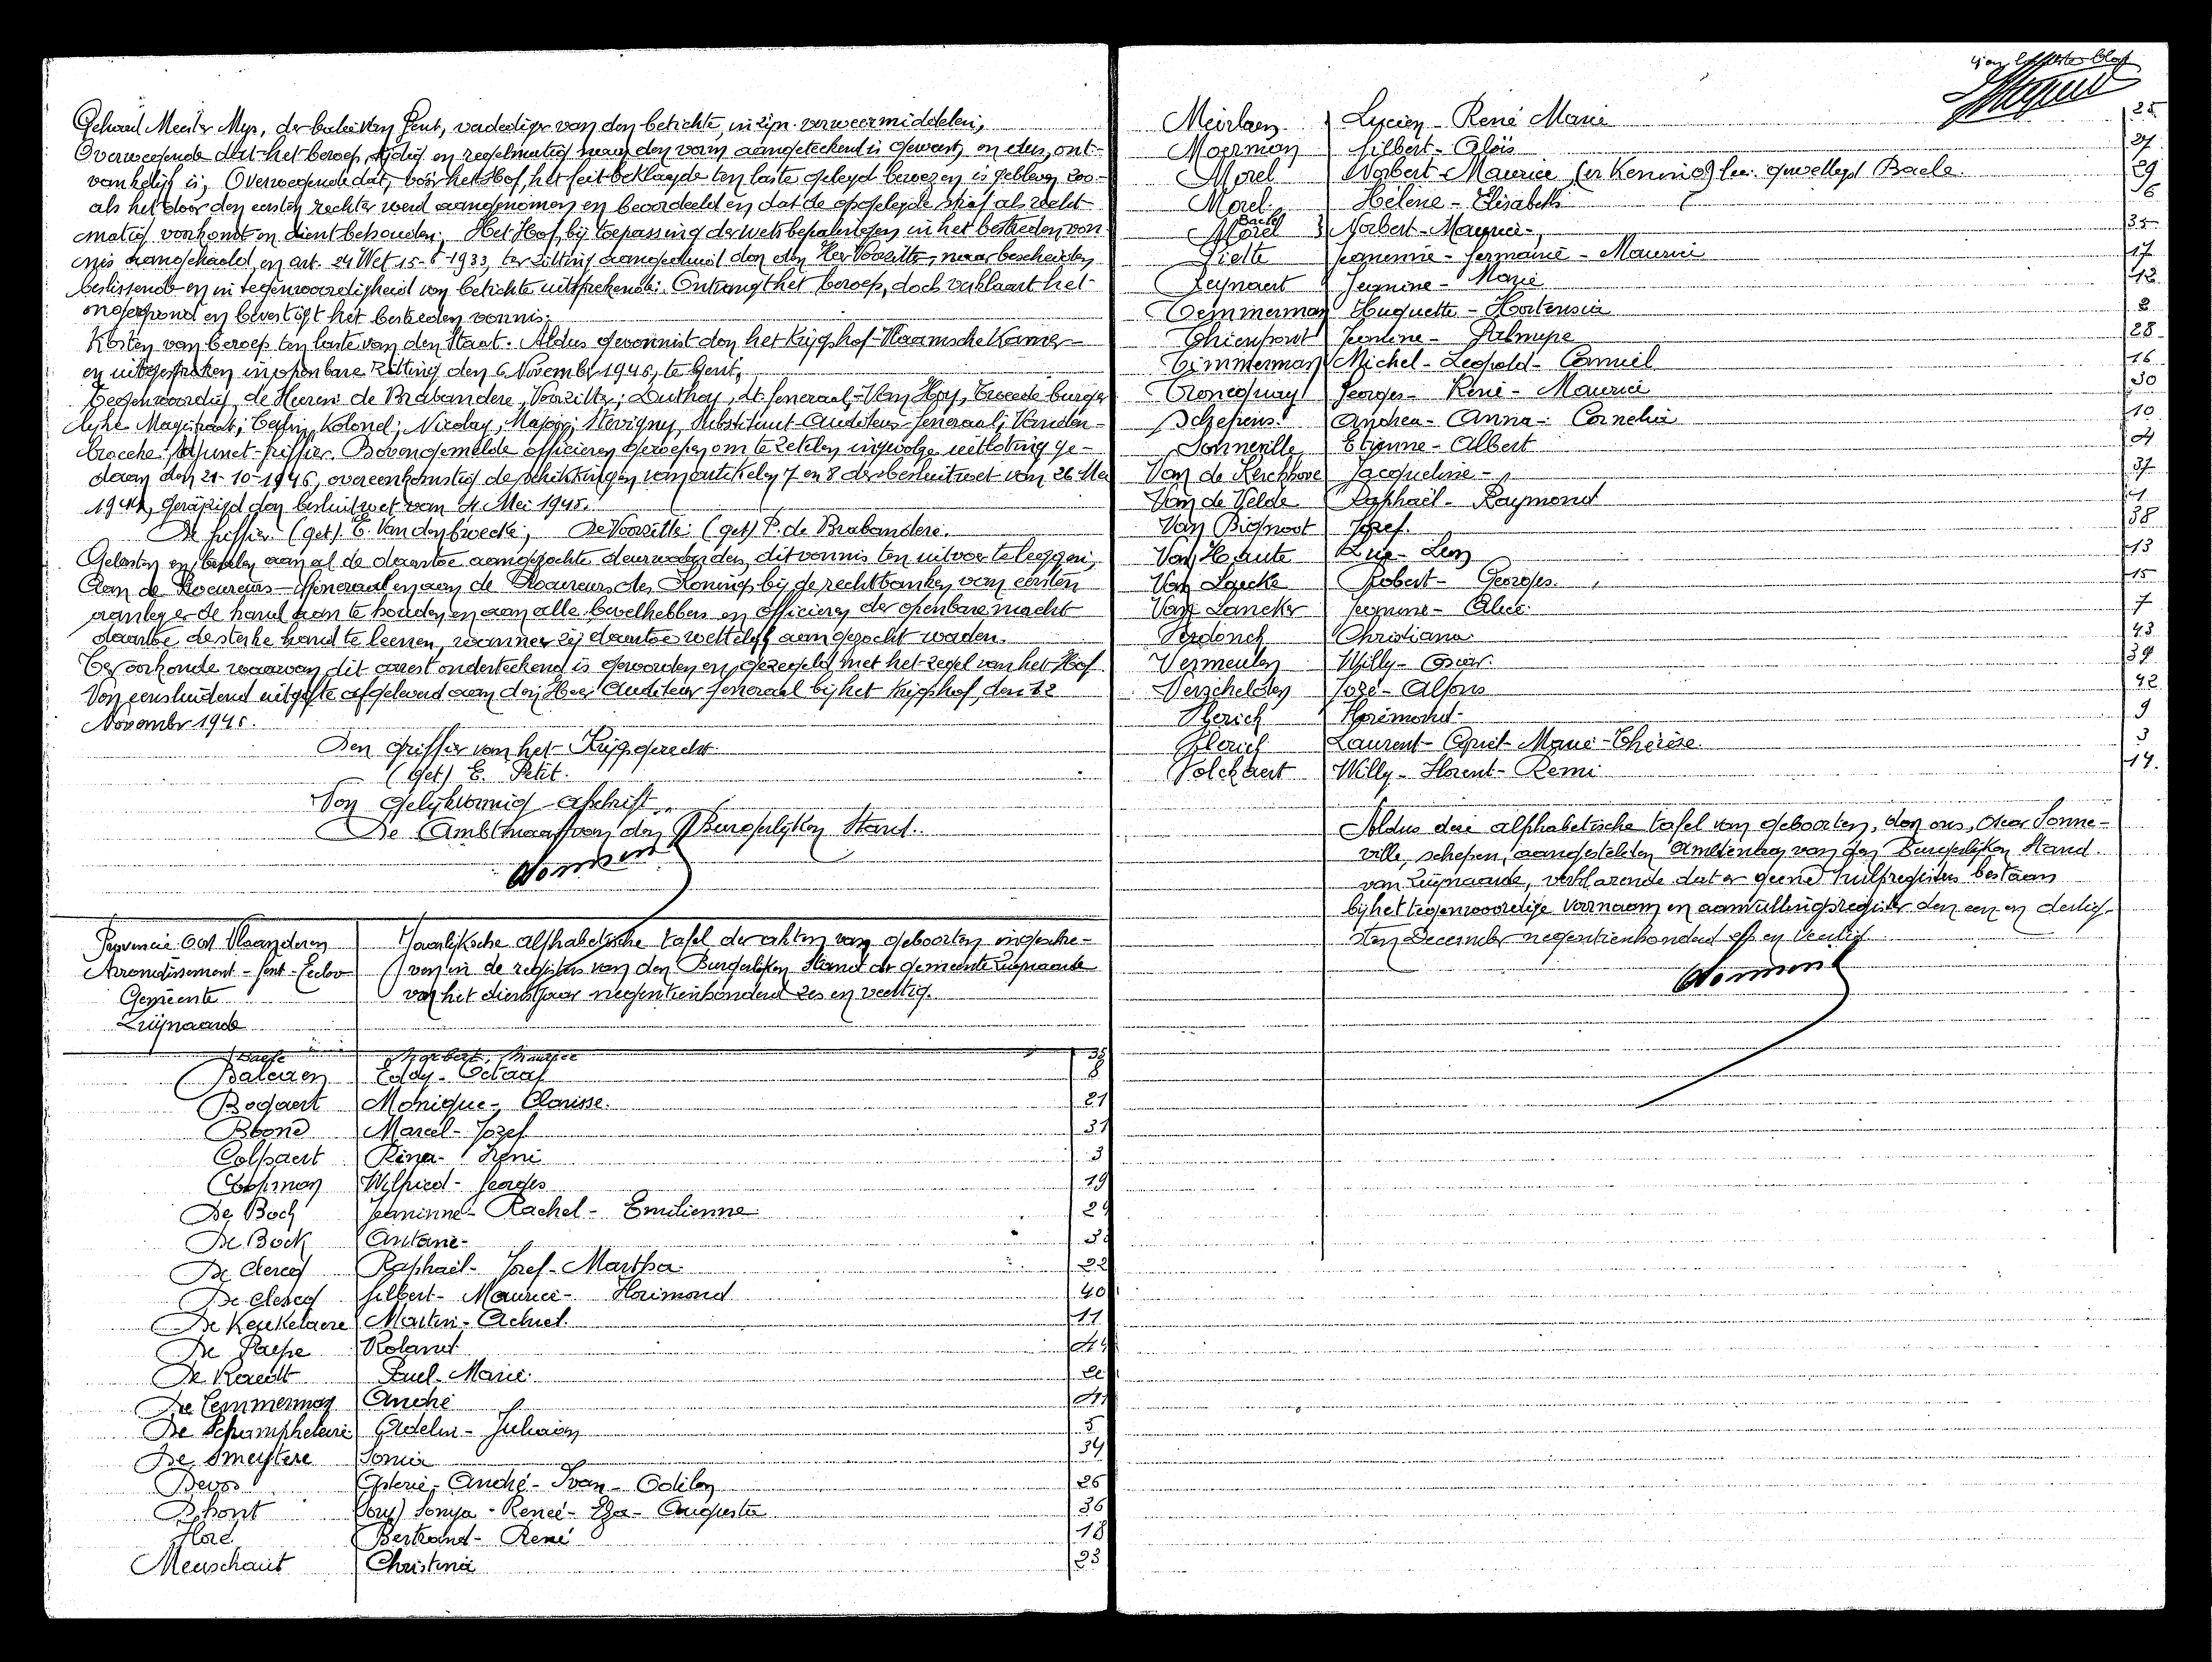 Gehoord Meester Mys, der balie van Gent, verdediger van den betichte, in zijn verweermiddelen;
Overwegende dat het beroep tijdig en regelmatig naar den vorm aangeteekend is geweest, en dus, ont-
vankelijk is; Overwegende dat, voor het Hof, het feit beklaagde ten laste gelegd bewezen is gebleven zoo-
als het door den eersten rechter werd aangenomen en beoordeeld en dat de opgelegde straf als recht-
matig voorkomt en dient behouden; Het Hof, bij toepassing der wetsbepalingen in het bestreden von-
nis aangehaald en art. 24 Wet 15-6-1933, ter zitting aangeduid door den Heer Voorzitter, naar bescheiden
beslissende en in tegenwoordigheid van betichte uitsprekende: Ontvangt het beroep, doch verklaart het
ongegrond en bevestigt het bestreden vonnis;
Kosten van beroep ten laste van den Staat. Aldus gevonnist door het Krijgshof-Vlaamsche Kamer-
en uitgesproken in openbare zitting den 6 November 1946, te Gent,
Tegenwoordig de Heeren: de Brabandere, Voorzitter; Duthoy, Lt. Generaal, Van Hoy, Tweede burger
lijke Magistraat; Kolonel; Nicolay, Majoor; Stevigny, Substituut-Auditeur-Generaal; Vanden-
broecke Adjunct-Griffier. Bovengemelde officieren geroepen om te zetelen ingevolge uitloting ge-
daan den 21-10-1946, overeenkomstig de schikkingen van artikelen 7 en 8 der besluitwet van 26 Mei
1944, gewijzigd door besluitwet van 4 Mei 1945.
De Griffier (get) E. Vandenbroecke; De Voorzitter: (get) P. de Brabandere.
Gelasten en bevelen aan al de daartoe aangezochte deurwaarders, dit vonnis ten uitvoer te leggen;
Aan de Procureurs-Generaal en aan de Procureurs des Konings bij de rechtbanken van eersten
aanleg er de hand aan te houden en aan alle bevelhebbers en officieren der openbare macht
daartoe de sterke hand te leenen, wanneer zij daartoe wettelijk aangezocht worden.
Ter oorkonde waarvan dit arrest onderteekend is geworden en gezegeld met het zegel van het Hof
Voor eensluidend uitgifte afgeleverd aan den Heer Auditeur Generaal bij het Krijgshof, den 12
November 1946.
Den Griffier van het Krijgsgerecht
(get) E. Petit.
Voor gelijkvormig afschrift,
De Ambtenaar van den Burgerlijken Stand.
Provincie Oost Vlaanderen
Arrondissement - Gent - Eecloo
Gemeente
Zwijnaarde
Jaarlijksche alphabetische tafel der akten van geboorten ingeschre-
ven in de registers van den Burgerlijken Stand der gemeente Zwijnaarde
van het dienstjaar negentienhonderd zes en veertig.
Baele Norbert, Maurice 35
Balcaen Eddy - Octaaf 8
Bogaert Monique - Clarisse. 21
Boone Marcel - Jozef 31
Colpaert Rina - Reni 3
Cookman Wilfried - Georges 19
De Bock Jeaninne - Rachel - Emilienne 29
De Bock Antoine -
De Clercq Raphaël - Jozef - Martha 22
De Clercq Gilbert - Maurice - Florimond 40
De Keukelaere Martin - Achiel 11
De Paepe Roland
Paul - Marie
De Temmerman André
De Schamphelaire Adelin - Juliaan 5
De Smeytere Sonia 34
Devos André - Ivan - Odilon 26
Dhont Sonya - Renée - Auguste 36
Bertrand - René 18
Meuschaert Christina 23
Meirlaen Lucien - René Marie 25
Moerman Gilbert - Aloïs 27
Morel Norbert - Maurice (erkenning) Baele 29
Morel Hélène - Elisabeth
Baele
Morel Norbert - Maurice - 35
Piette Jeannine - Germaine - Maurice 17
Reynaert Jeannine - Marie 12
Temmerman Huguette - Hortensia 2
Thienpont Jeanine - Palmyre 28
Timmerman Michel - Leopold - Camiel 16
Tronequay Georges - René - Maurice 30
Schepens Andrea - Anna - Cornelia 10
Sonneville Etienne - Albert
Van de Kerchhove Jacqueline - 37
Van de Velde Raphaël - Raymond
Jozef. 38
Van Haute Leon 13
Van Laecke Robert - Georges 15
Van Lancker Jeannine - Alice 7
Verdonck Christiana 43
Vermeulen Willy - Oscar 39
Verschelden José - Alfons 42
Florimond 9
Laurent - Marie - Thérèse 3
Volckaert Willy - Florent - Remi 14
Aldus deze alphabetische tafel van geboorten, door ons, Oscar Sonne-
ville, schepen, aangestelden Ambtenaar van den Burgerlijken Stand
van Zwijnaarde, verklarende dat er geene hulpregisters bestaan
bij het tegenwoordige voornaam en aanvullingsregister den een en dertig-
sten December negentienhonderd zes en veertig